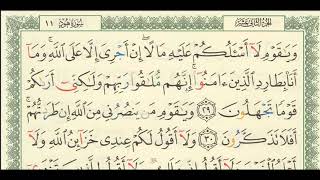 سُورَةُ هُودٍ ١١ الجُزْءُ الثَّانِي عَشَرَ
وَيَٰقَوْمِ لَآ أَسْـَٔلُكُمْ عَلَيْهِ مَالًا ۖ إِنْ أَجْرِىَ إِلَّا عَلَى ٱللَّهِ ۚ وَمَآ
أَنَا۠ بِطَارِدِ ٱلَّذِينَ ءَامَنُوٓا۟ ۚ إِنَّهُم مُّلَٰقُوا۟ رَبِّهِمْ وَلَٰكِنِّىٓ أَرَىٰكُمْ
قَوْمًا تَجْهَلُونَ ٢٩ وَيَٰقَوْمِ مَن يَنصُرُنِى مِنَ ٱللَّهِ إِن طَرَدتُّهُمْ ۚ
أَفَلَا تَذَكَّرُونَ ٣٠ وَلَآ أَقُولُ لَكُمْ عِندِى خَزَآئِنُ ٱللَّهِ وَلَآ